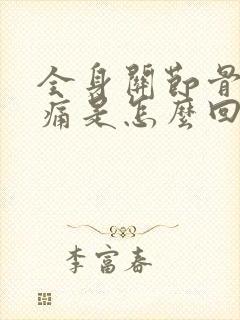 全身關節骨
痛是怎麼回
李富春